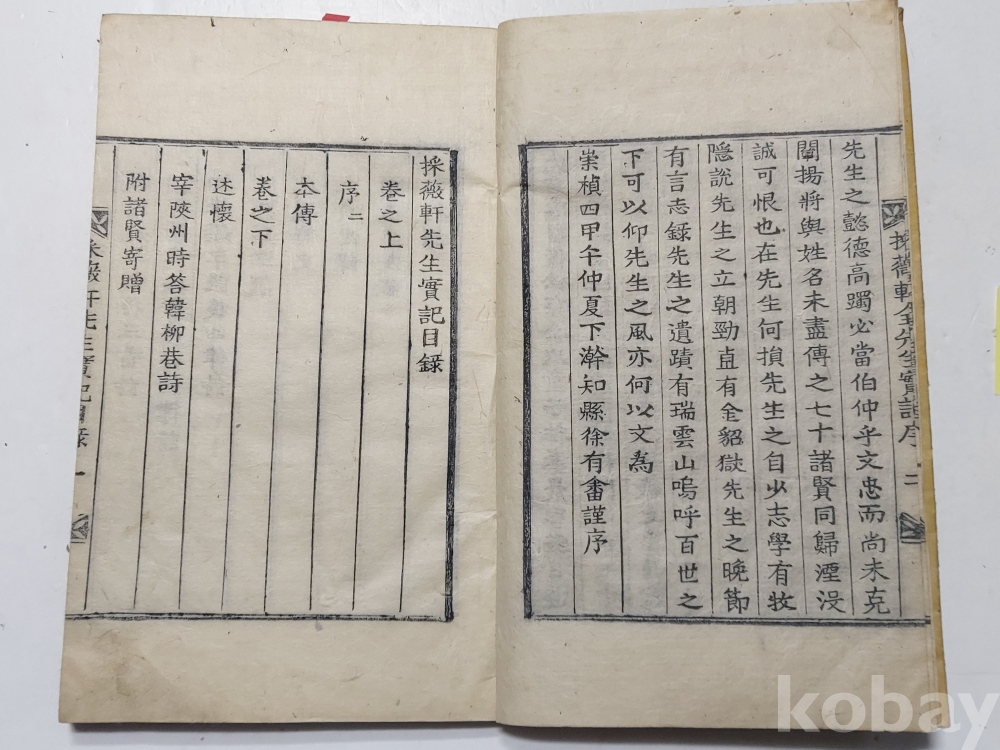 先生之懿德高躅必當伯仲乎文忠而尚未克
闡揚將與姓名未盡傳之七十諸賢同歸湮沒
誠可恨也在先生何損先生之自少志學有牧
隱說先生之立朝勁直有金貂獄先生之晚節
有言志錄先生之遺蹟有瑞雲山嗚呼百世之
下可以仰先生之風亦何以文為
崇楨四甲午仲夏下澣知縣徐有畬謹序
採薇軒先生實記目錄
卷之上
序二
本傳
卷之下
述懷
宰陜州時答韓柳巷詩
附諸賢寄贈
採薇軒先生實記目錄 一
kobay